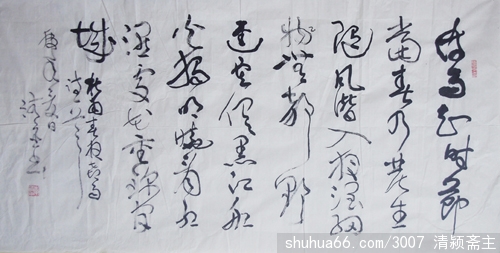 好雨知时节
当春乃发生
随风潜入夜润细
物無声野
径云俱黑江船
火独明晓看红
湿处花重锦官
城
杜甫春夜喜雨
诗一首
夏日
shuhua66.com/3007 清颖斋主